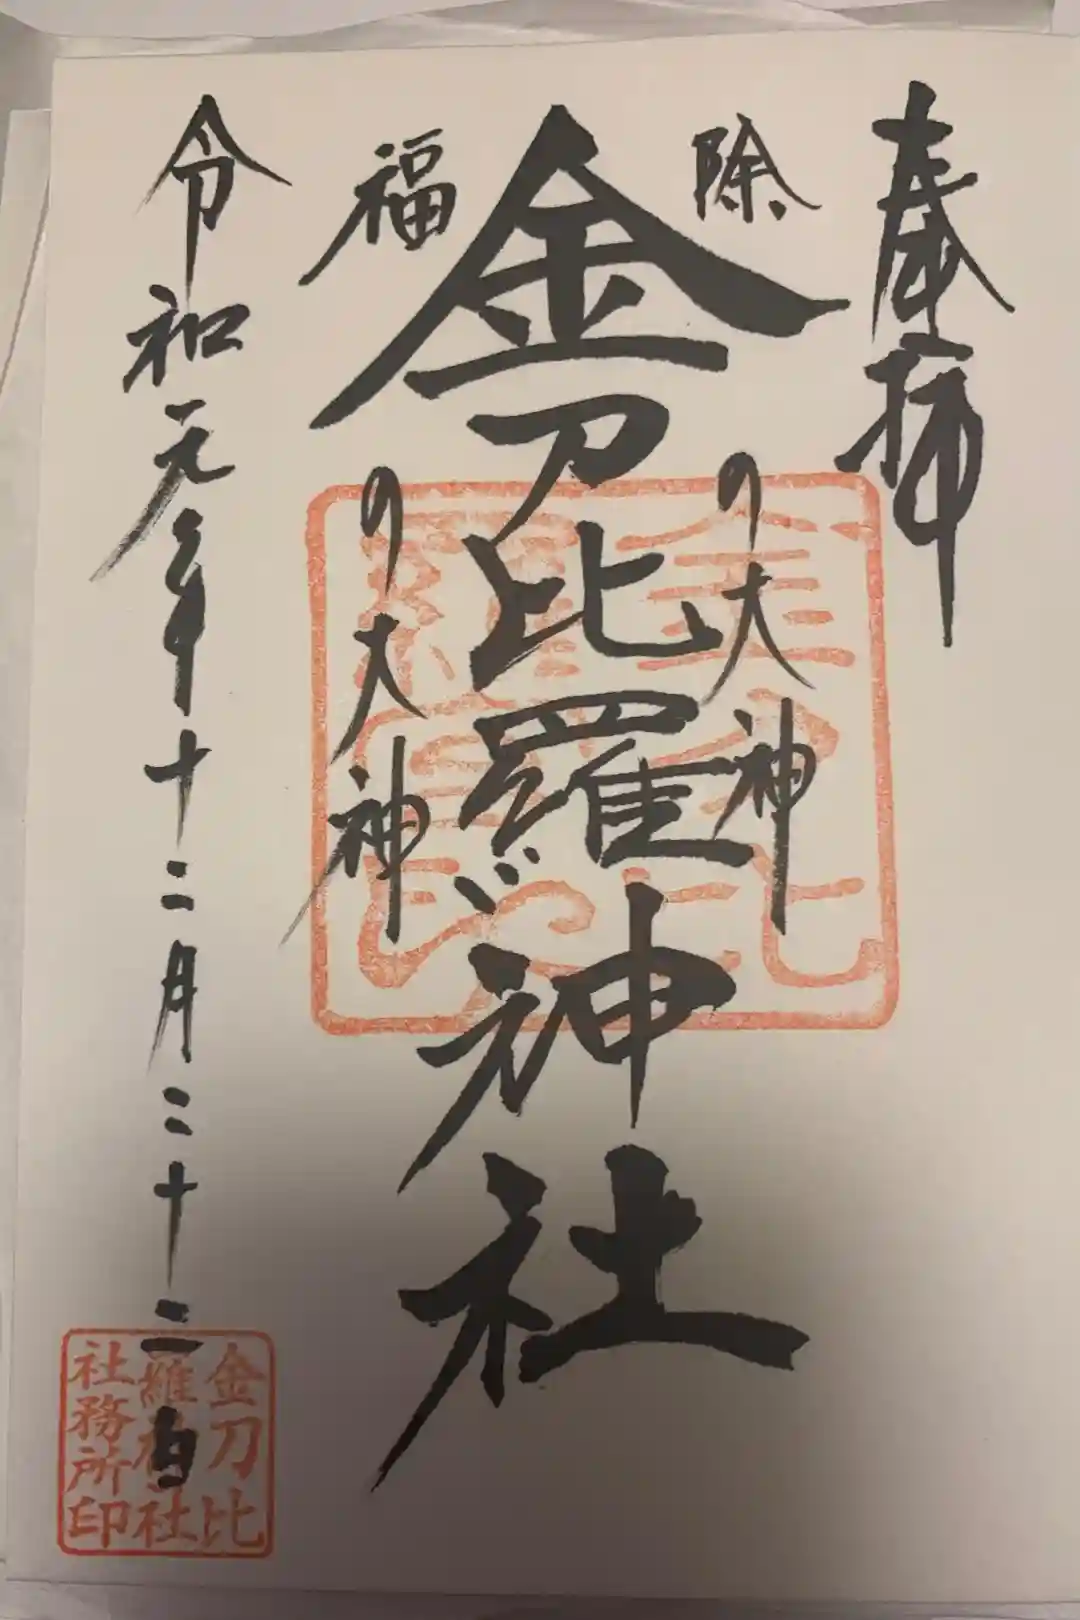 奉拝
除の大神
金刀比羅神社
福の大神
令和元年十二月二十三日
金刀比
羅神社
社務所印